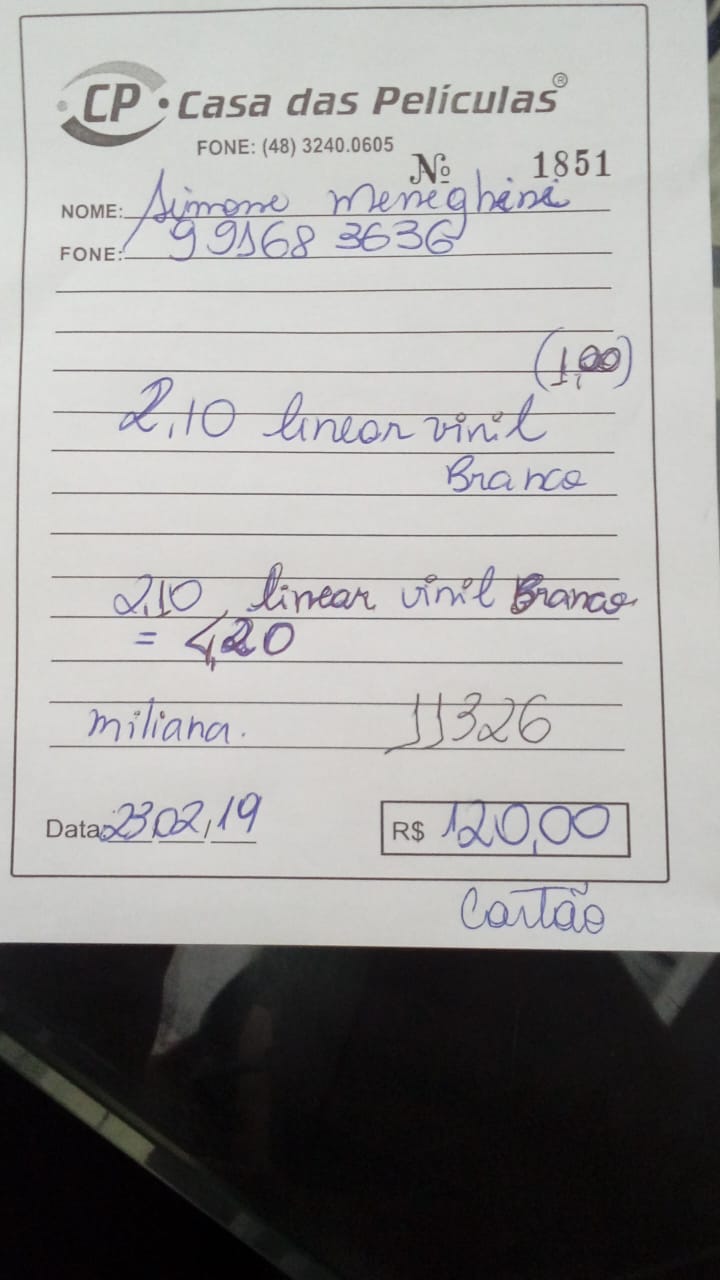 CP • Casa das Películas®
FONE: (48) 3240.0605
Nº 1851
NOME: Simone Meneghini
FONE: 99168 3636
(1,00)
2,10 linear vinil
Branco
2,10 linear vinil Branco
= 4,20
miliana. 11326
Data 23/02/19 R$ 120,00
Cartão